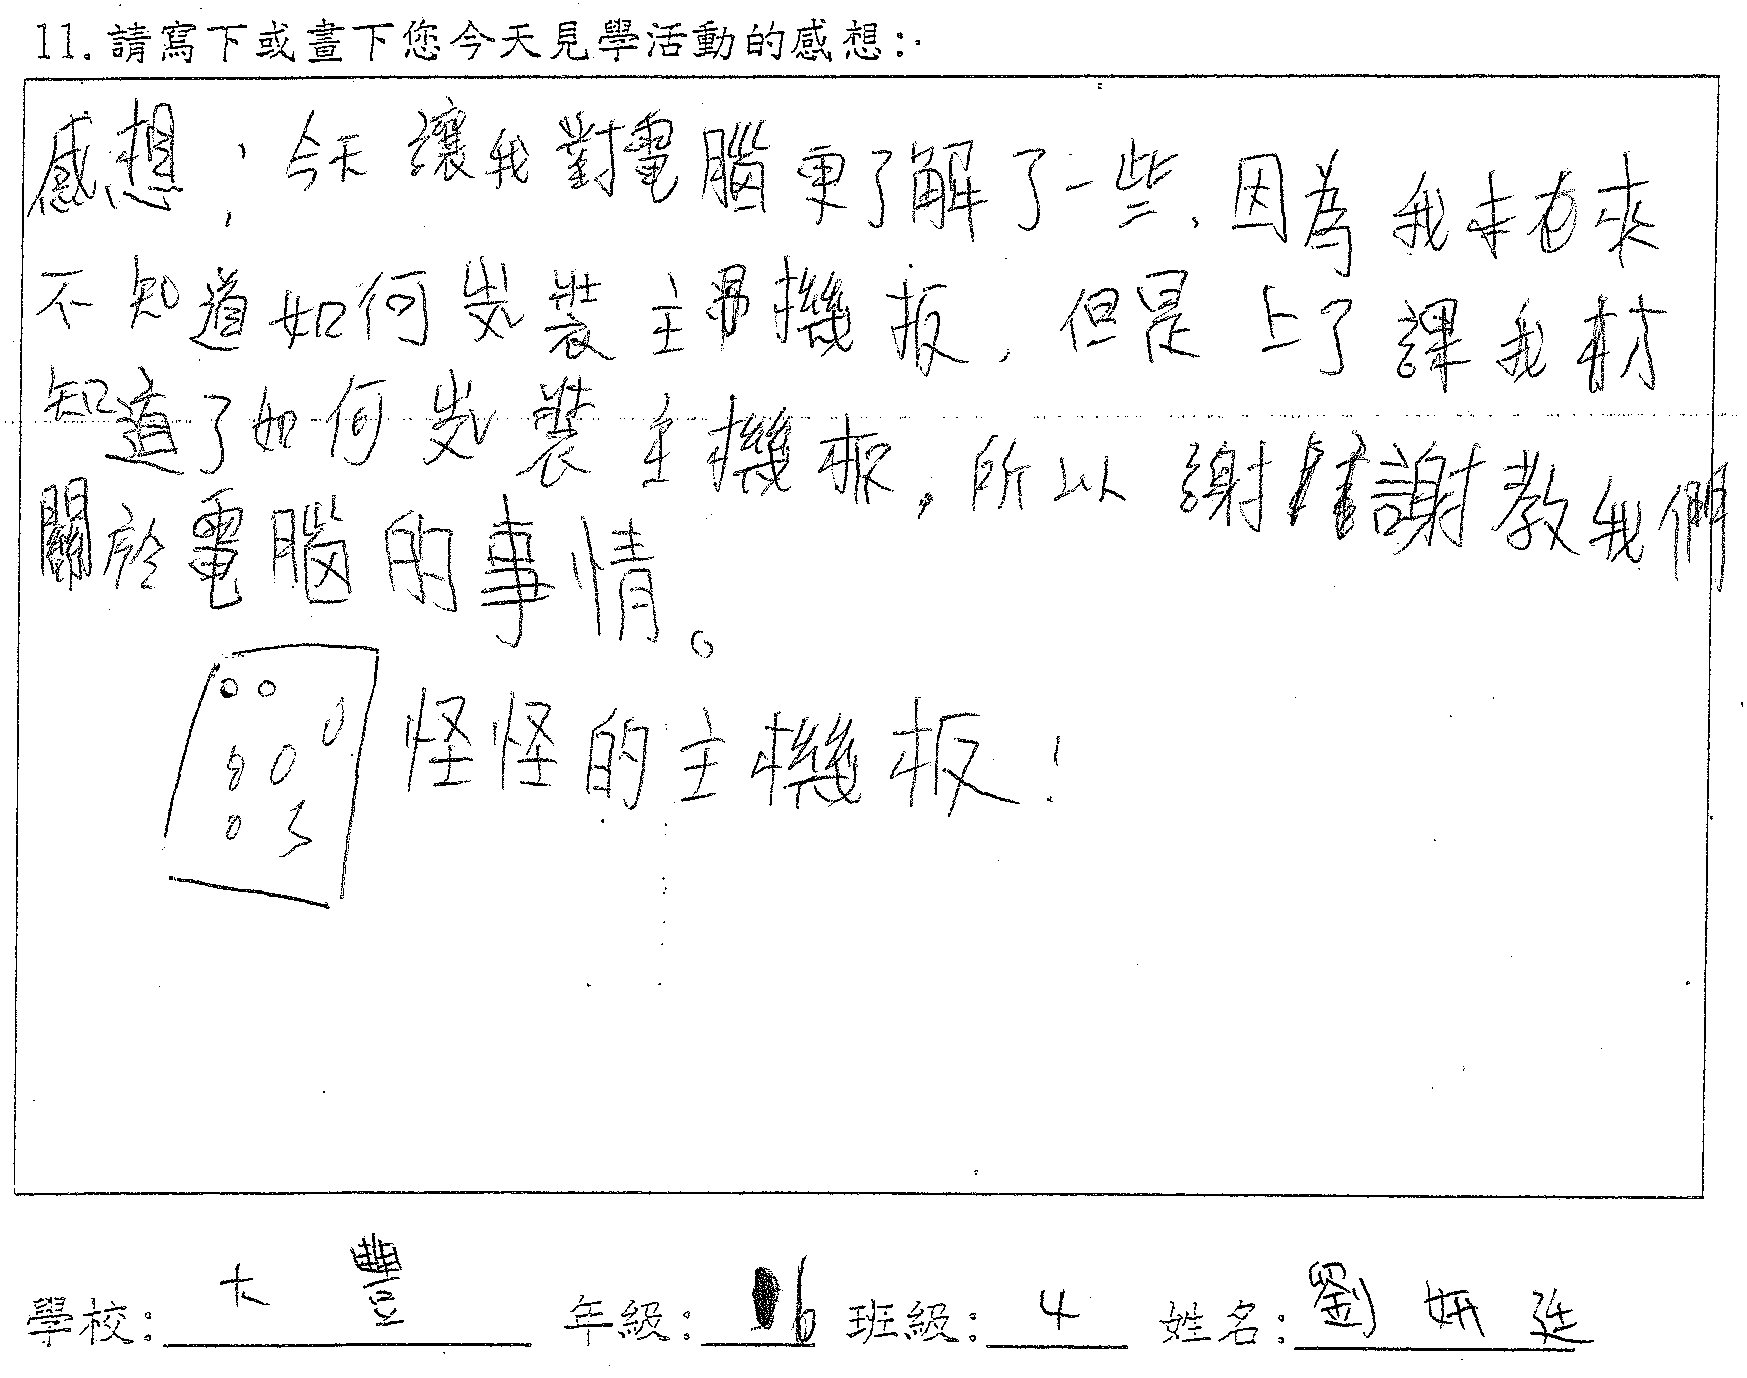 11.請寫下或畫下您今天見學活動的感想:
感想:今天讓我對電腦更了解了一些,因為我本來
不知道如何裝主機板,但是上了課我材
知道了如何裝主機板,所以謝謝教我們
關於電腦的事情。
怪怪的主機板!
學校:大豐 年級:6 班級:4 姓名:劉妍廷